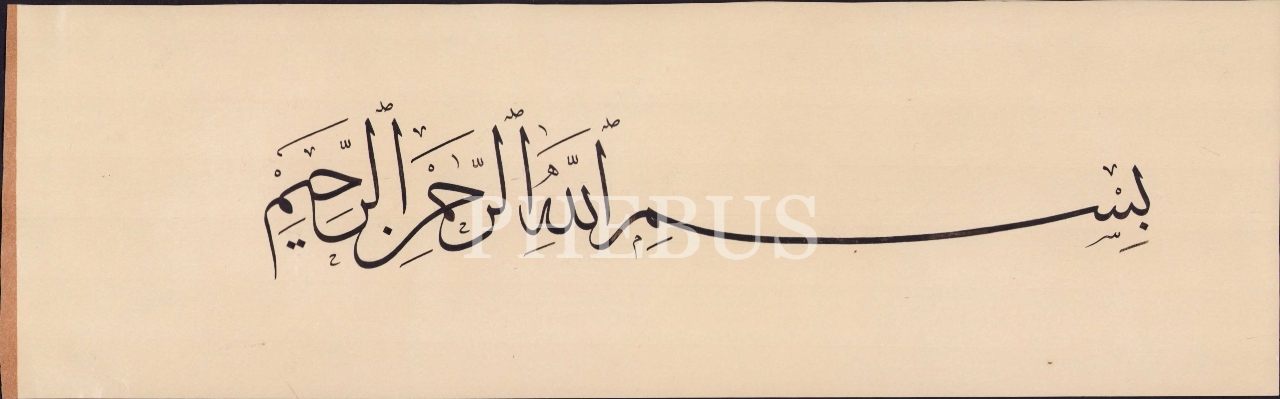 بِسْمِ ٱللَّهِ ٱلرَّحْمٰنِ ٱلرَّحِيْمِ
PHEBUS